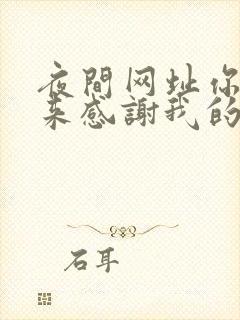 夜間网址你
来感謝我的
石耳